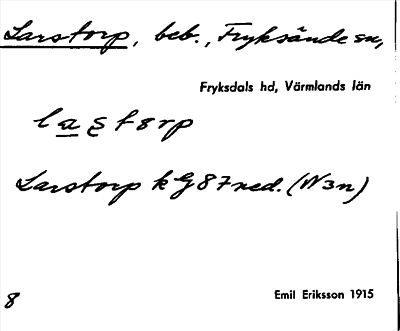 Larstorp, beb., Fryksände sn,
Fryksdals hd, Värmlands län
lastorp
Larstorp k G87 ned. (N3n)
Emil Eriksson 1915
8